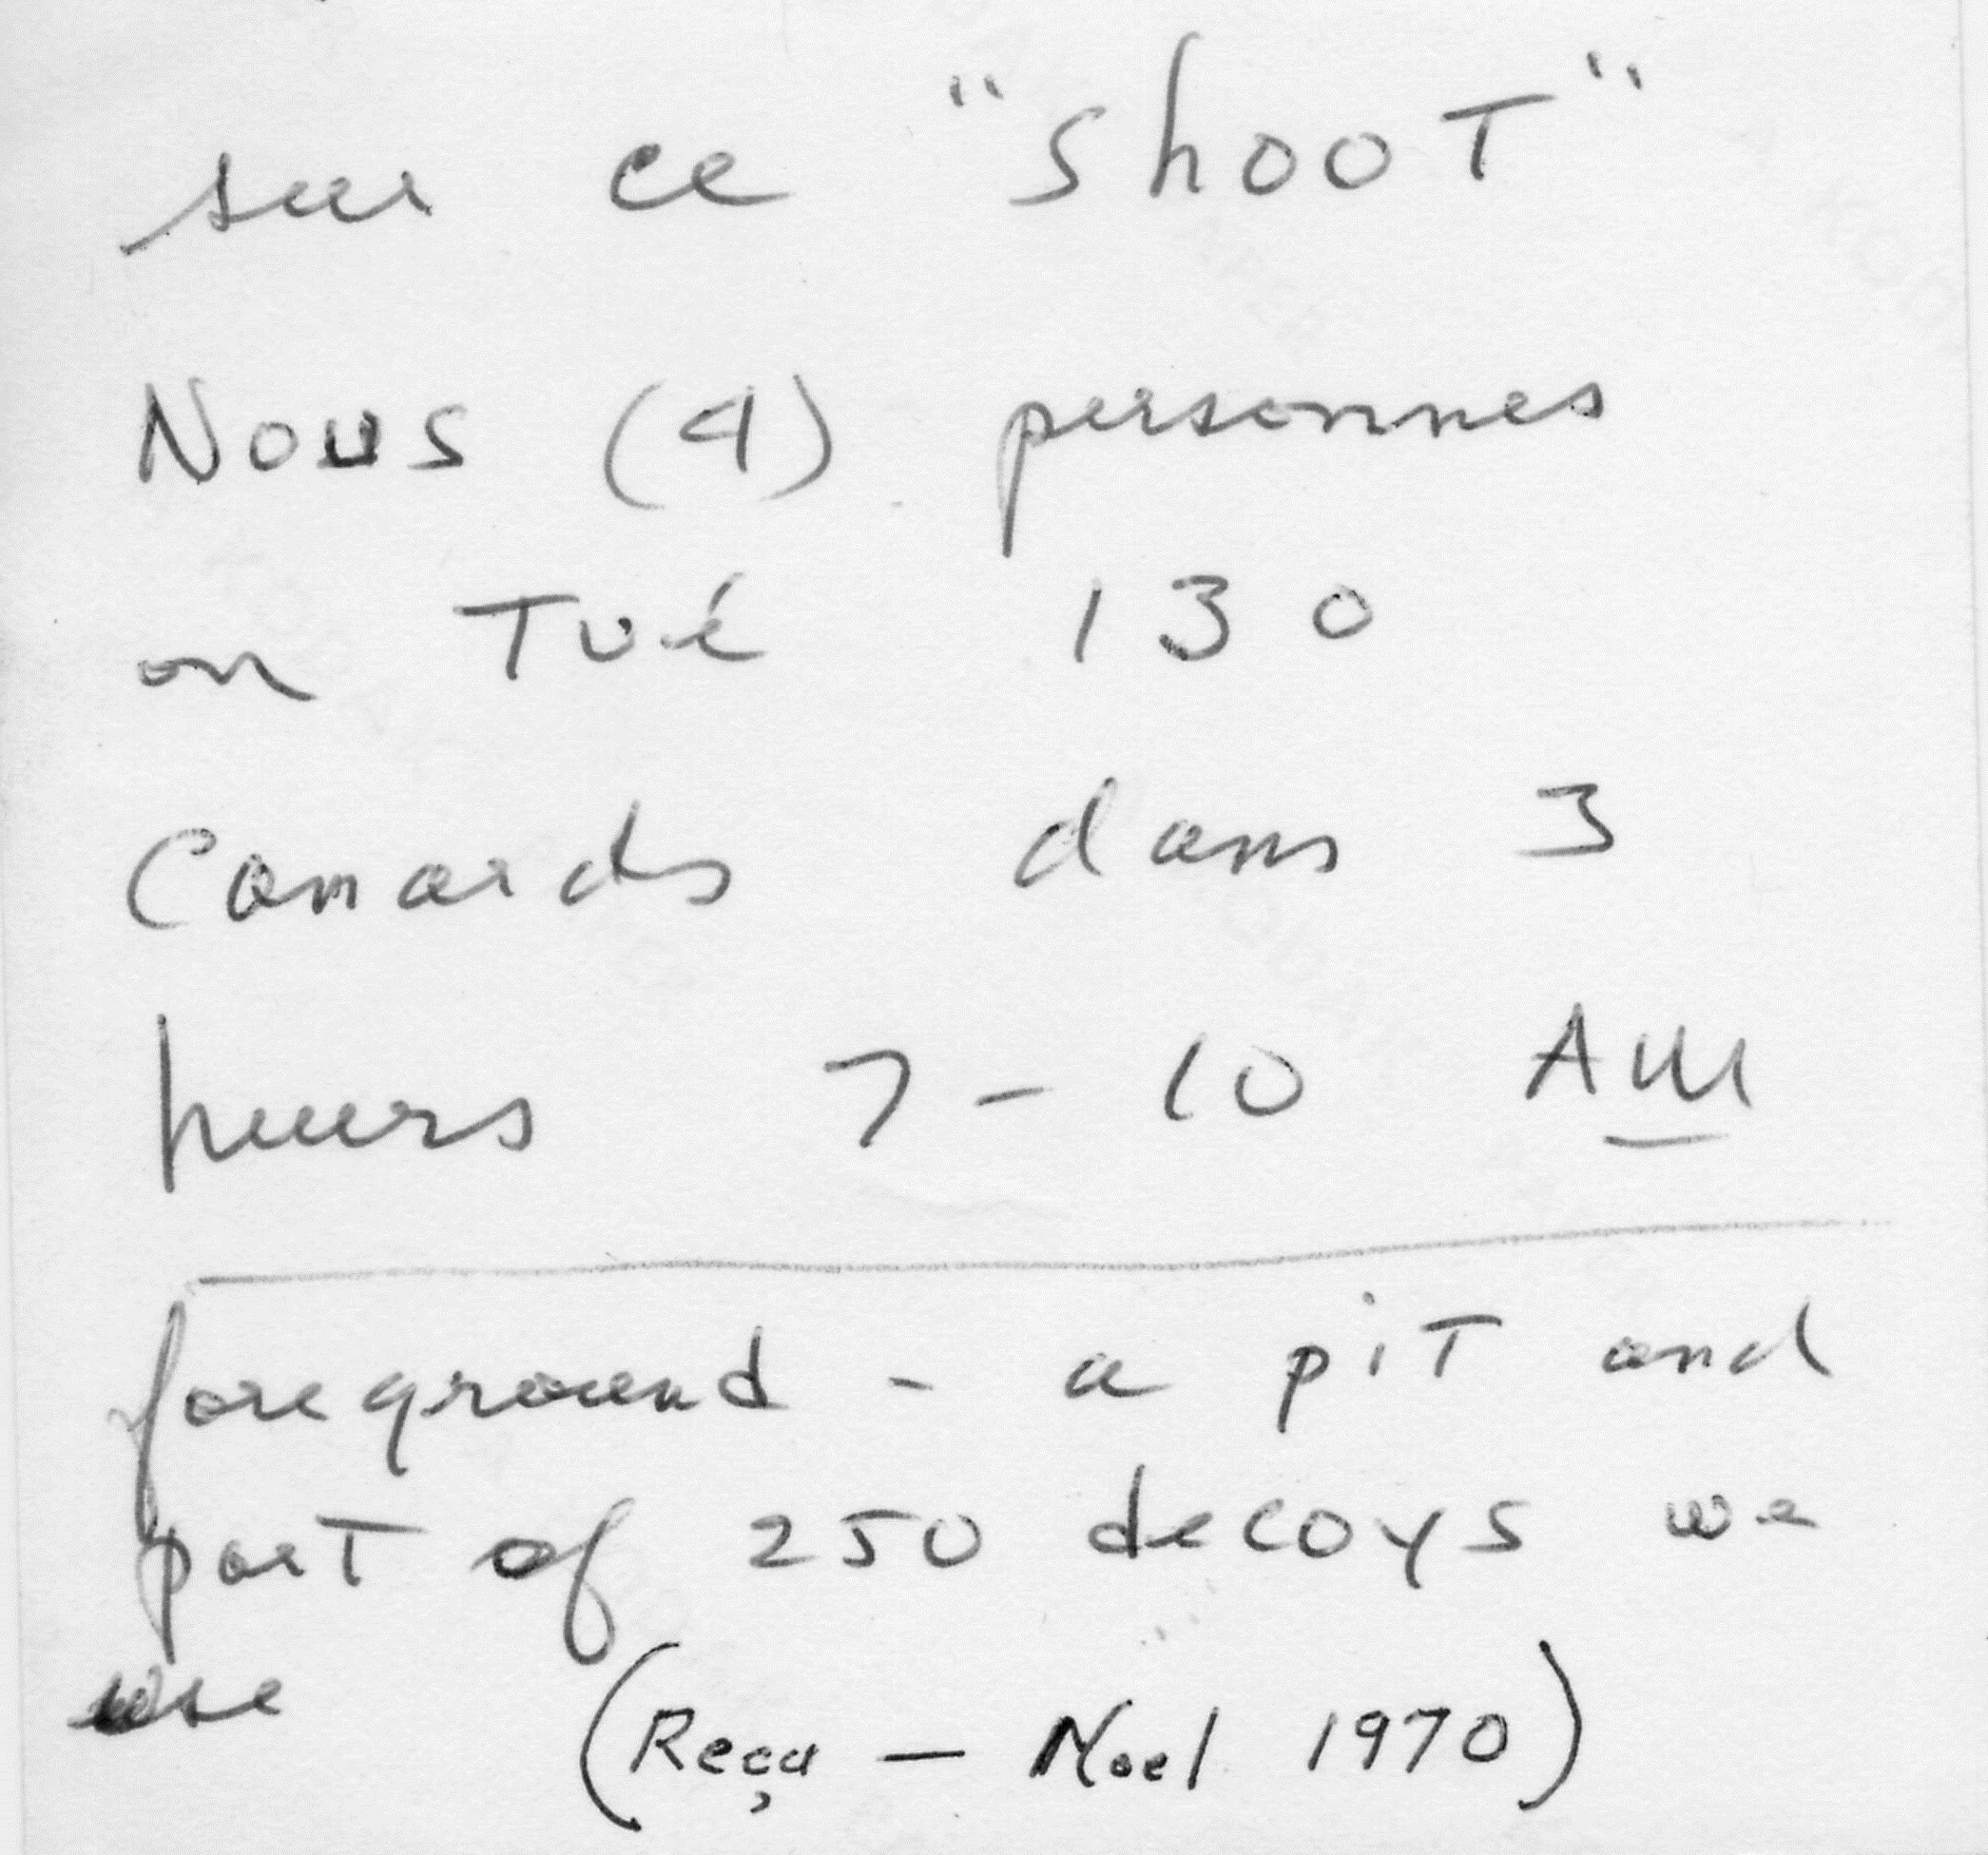 sur ce "shooT"
Nous (4) personnes
on Tué 130
Canards dans 3
heurs 7 - 10 AM
foreground - a piT and
parT of 250 decoys we
use (Reçu — Noel 1970)